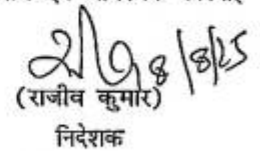 8/8/25
(राजीव कुमार)
निदेशक